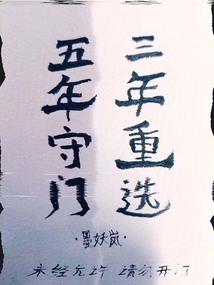 三年重选
五年守门
·墨妖岚·
未经允许 请勿开门